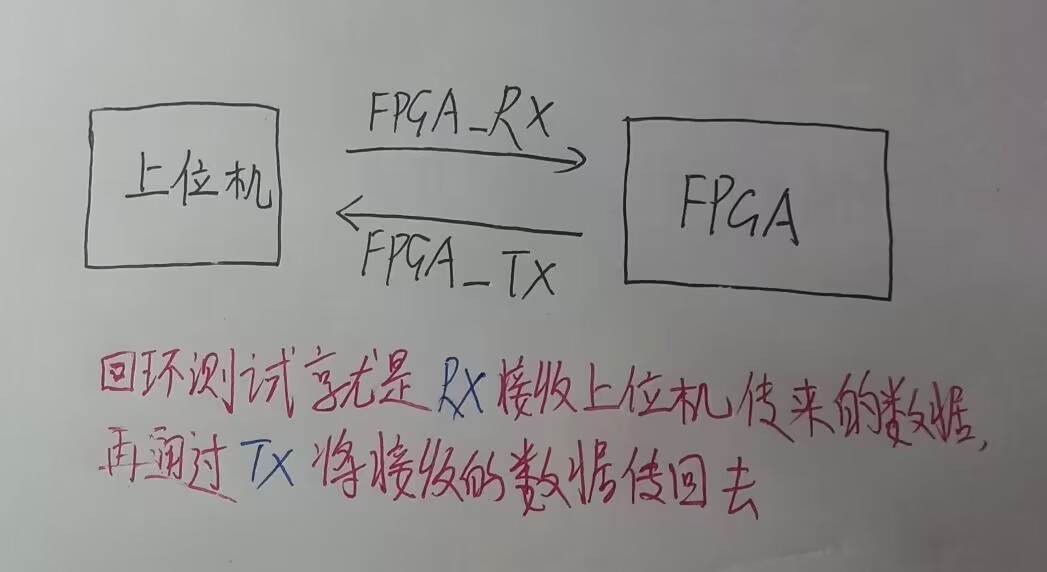 FPGA_RX
上位机
FPGA
FPGA_TX
回环测试就是RX接收上位机传来的数据,
再通过TX将接收的数据传回去